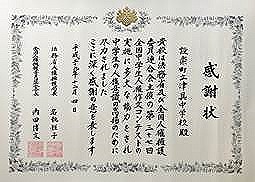 感謝状
設楽町立津具中学校殿
貴校は法務省及び全国人権擁護
委員連合会主催の第三十七回
全国中学生人権作文コンテストの
実施に多大な協力をされ
中学生の人権意識の高揚のために
尽力されました
ここに深く感謝の意を表します
平成二十九年十二月四日
法務省人権擁護局長
名執雅子
全国人権擁護委員連合会長
内田博文